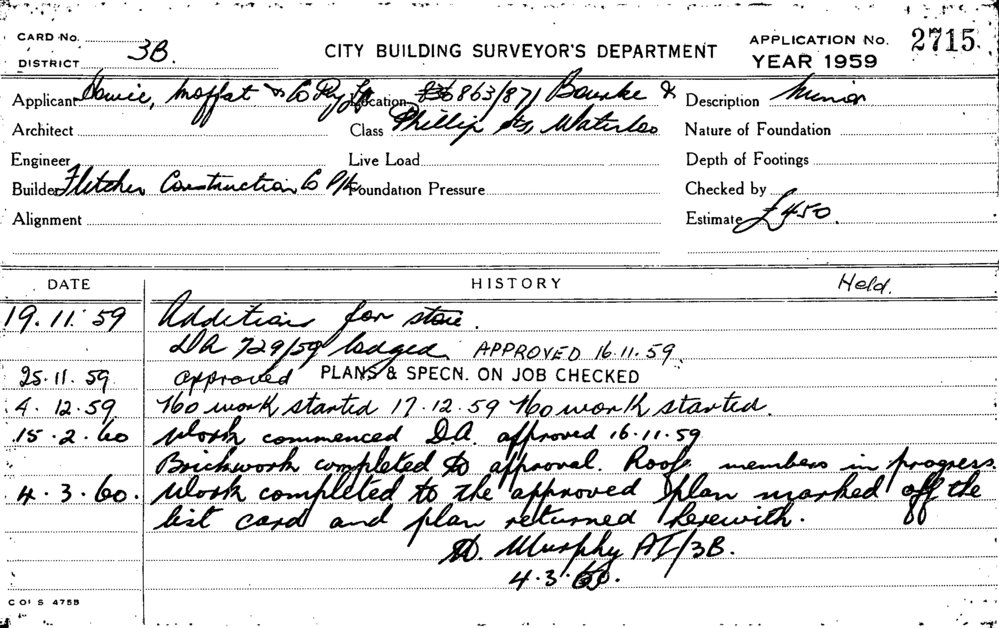 CARD No.
DISTRICT 3B.
CITY BUILDING SURVEYOR'S DEPARTMENT
APPLICATION No. 2715
YEAR 1959
Applicant Howie, Moffat & Co Pty Ltd Location 863/871 Bourke &
Description Minor
Architect Class Phillip Sts, Waterloo
Nature of Foundation
Engineer Live Load
Depth of Footings
Builder Fletcher Construction Co P/L Foundation Pressure
Checked by
Alignment
Estimate £450.
DATE HISTORY Held.
19.11.59 Additions for store.
DA 729/59 lodged. APPROVED 16.11.59.
25.11.59 approved PLANS & SPECN. ON JOB CHECKED
4.12.59 No work started 17.12.59 No work started.
15.2.60 Work commenced D.A. approved 16.11.59
Brickwork completed to approval. Roof members in progress
4.3.60. Work completed to the approved plan marked off the
list card and plan returned herewith.
Murphy AI/3B.
4.3.60.
C OF S 475B